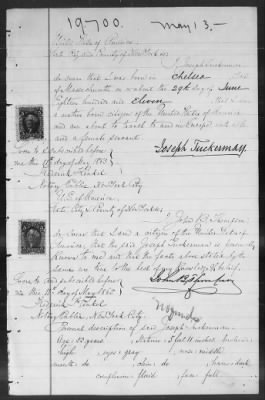 19700. May 13 —
United States of America
State City and County of New York ss.
I Joseph Tuckerman
do swear that I was born in Chelsea
of Massachusetts on or about the 29th day of June
Eighteen hundred and Eleven
a native born citizen of the United States of America
and am about to travel to and in Europe with wife
and a female servant.
Joseph Tuckerman
Sworn to & subscribed before
me the 11th day of May 1863
Frederick
Notary Public, New York City
U.S. of America
State City & County of New York ss.
I John B. Thompson
do swear that I am a citizen of the United States of
America, that the said Joseph Tuckerman is personally
known to me and that the facts above stated by the
same are true to the best of my knowledge & belief.
John B Thompson
Sworn to and subscribed before
me this 11th day of May 1863
Frederick
Notary Public, New York City.
Personal description of said Joseph Tuckerman
Age: 53 years, Stature: 5 feet 11 inches,
high, eyes: gray, nose: middle,
mouth: do, chin: do, hair: dark
complexion: florid, face: full